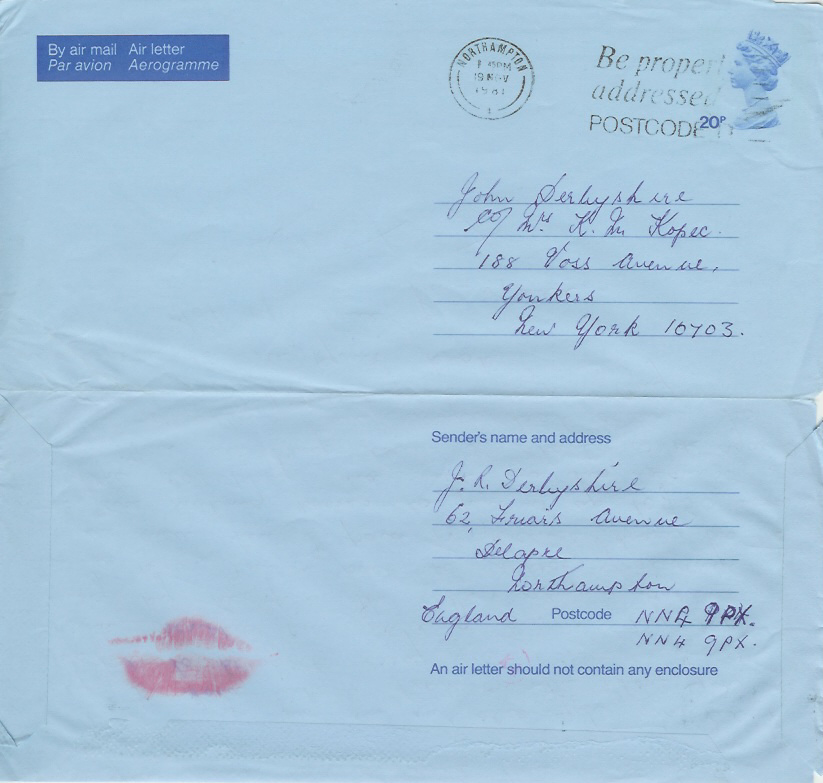 By air mail Air letter
Par avion Aerogramme
NORTHAMPTON
19 NOV
Be properly
addressed
POSTCODE IT
20P
John Derbyshire
c/o Mrs K. M. Kopec.
188 Voss Avenue,
Yonkers
New York 10703.
Sender's name and address
J. R. Derbyshire
62, Friars Avenue
Delapre
Northampton
England Postcode NN4 9PX.
NN4 9PX.
An air letter should not contain any enclosure